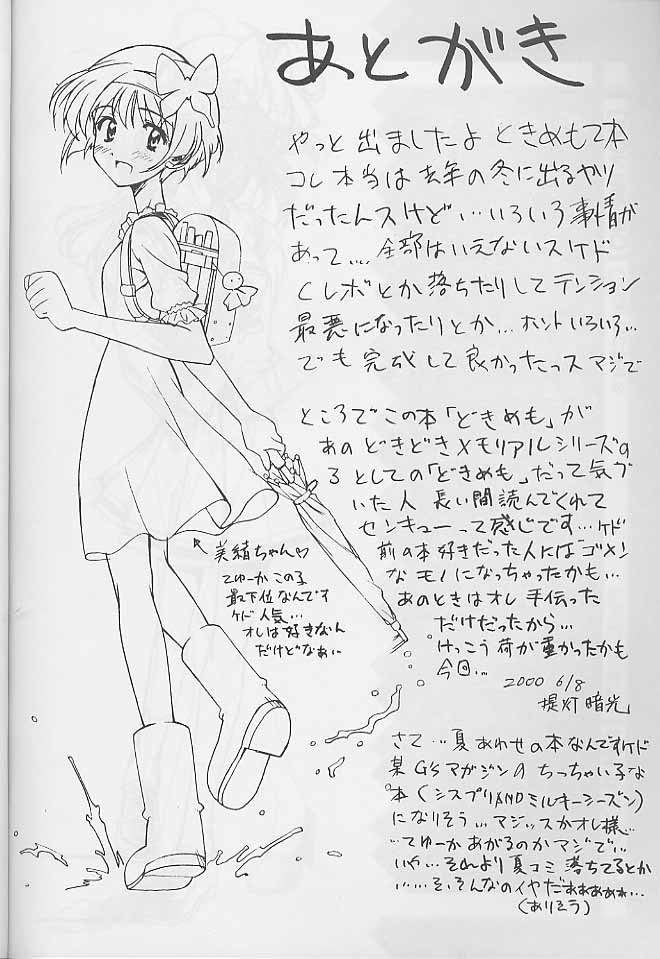 あとがき
やっと出ましたよ ときめもて本
コレ本当は去年の冬に出るやり
だったんスけど…いろいろ事情が
あって… 全部はいえないスケド
Cレボとか落ちたりしてテンション
最悪になったりとか…ホントいろいろ…
でも完成して良かったっス マジで
ところでこの本「どきめも」が
あのどきどきメモリアルシリーズの
3としての「どきめも」だって気づ
いた人 長い間読んでくれて
センキューって感じです…ケド
前の本好きだった人には「ゴメン」
なモノになっちゃったかも…
あのときはオレ 手伝った
だけだったから…
けっこう荷が重かったかも
今回…
2000 6/8
提灯暗光
美緒ちゃん♡
てゆーかこの子
最下位なんです
ケド人気…
オレは好きなん
だけどなぁ…
さて…夏あわせの本なんですケド
某G'sマガジンのちっちゃい子な
本(シスプリANDミルキーシーズン)
になりそう…マジッスかオレ様…
…てゆーかあがるのかマジで…
いや…それより夏コミ落ちてるとか
……そ、そんなのイヤだぁぁぁぁぁ…
(ありそう)